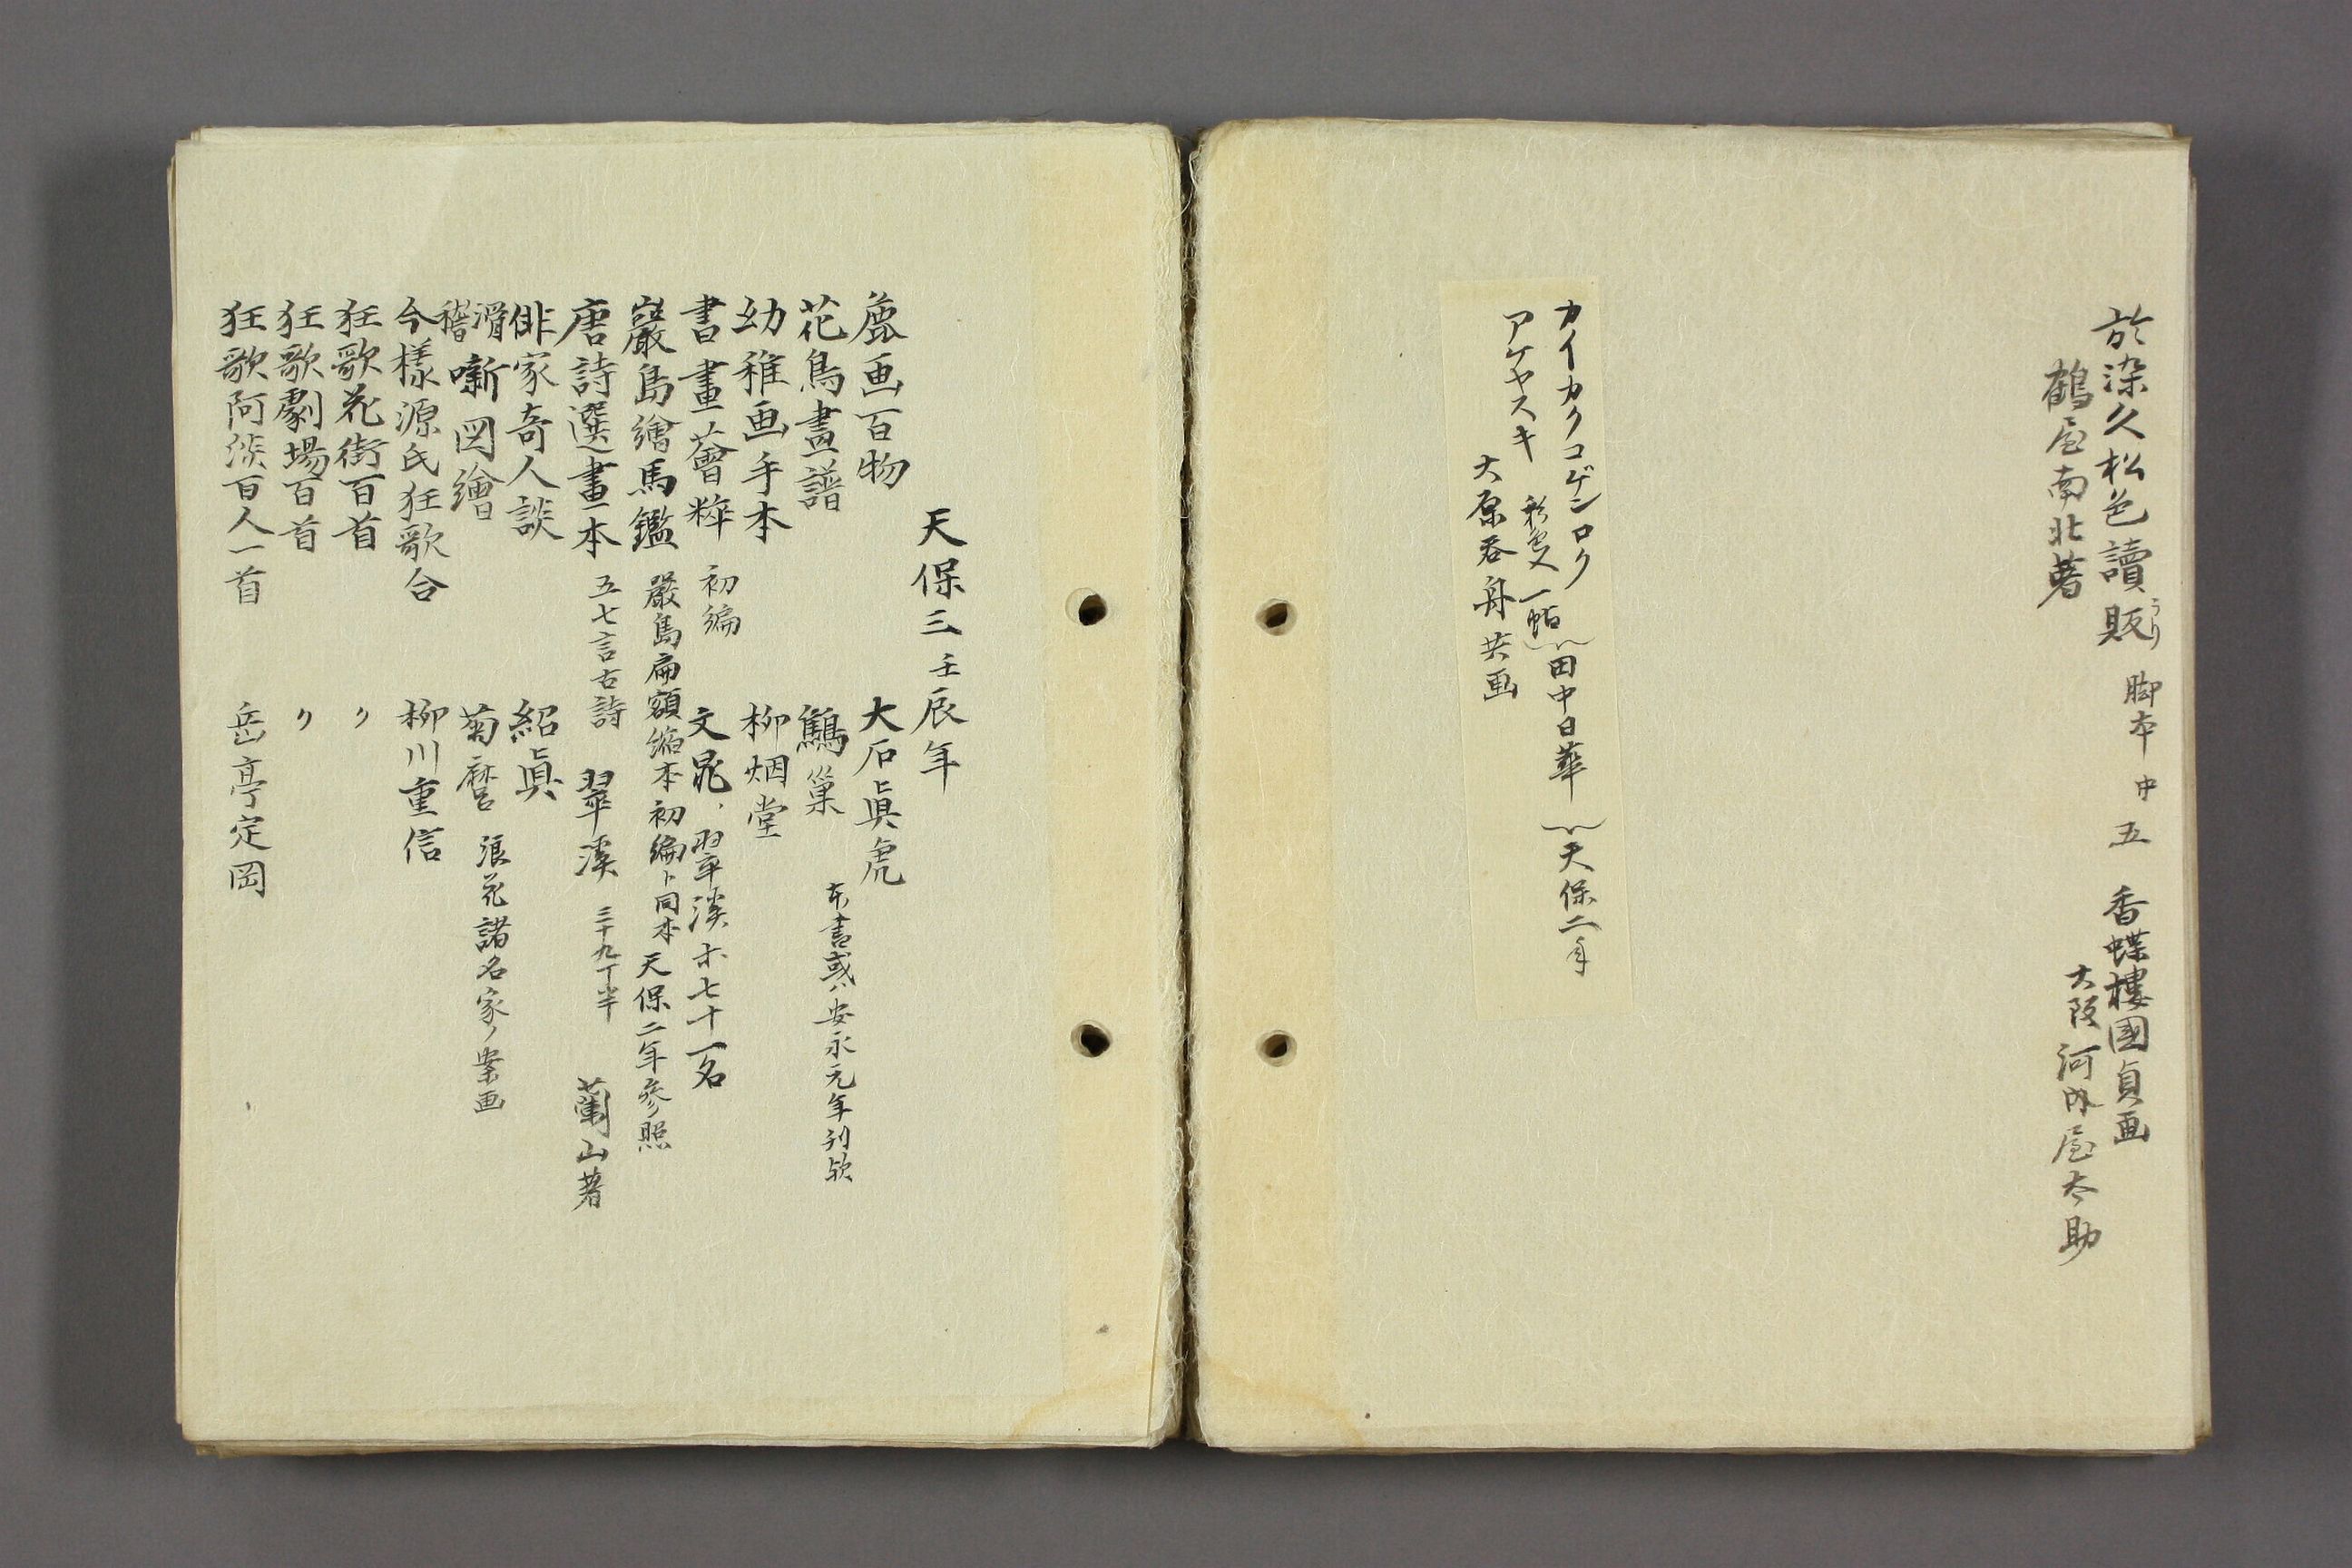 於染久松色讀販 脚本 中 五 香蝶樓國貞画
うり
鶴屋南北著 大阪 河内屋太助
カイカクコゲンロク 田中日華 天保二年
彩色入一帖
アケヤスキ 大原呑舟共画
天保三壬辰年
麁画百物 大石眞虎
花鳥畫譜 鷦巢 本書或ハ安永元年刊欤
幼稚画手本 柳烟堂
書畫薈粹 初編 文晁、翠溪ホ七十一名
嚴島繪馬鑑 嚴島扁額縮本初編ト同本天保二年參照
唐詩選畫本 五七言古詩 翠溪 三十九丁半 蘭山著
俳家奇人談 紹眞
滑稽噺図繪 菊麿 浪花諸名家ノ案画
今樣源氏狂歌合 柳川重信
狂歌花街百首 〃
狂歌劇場百首 〃
狂歌阿淡百人一首 岳亭定岡